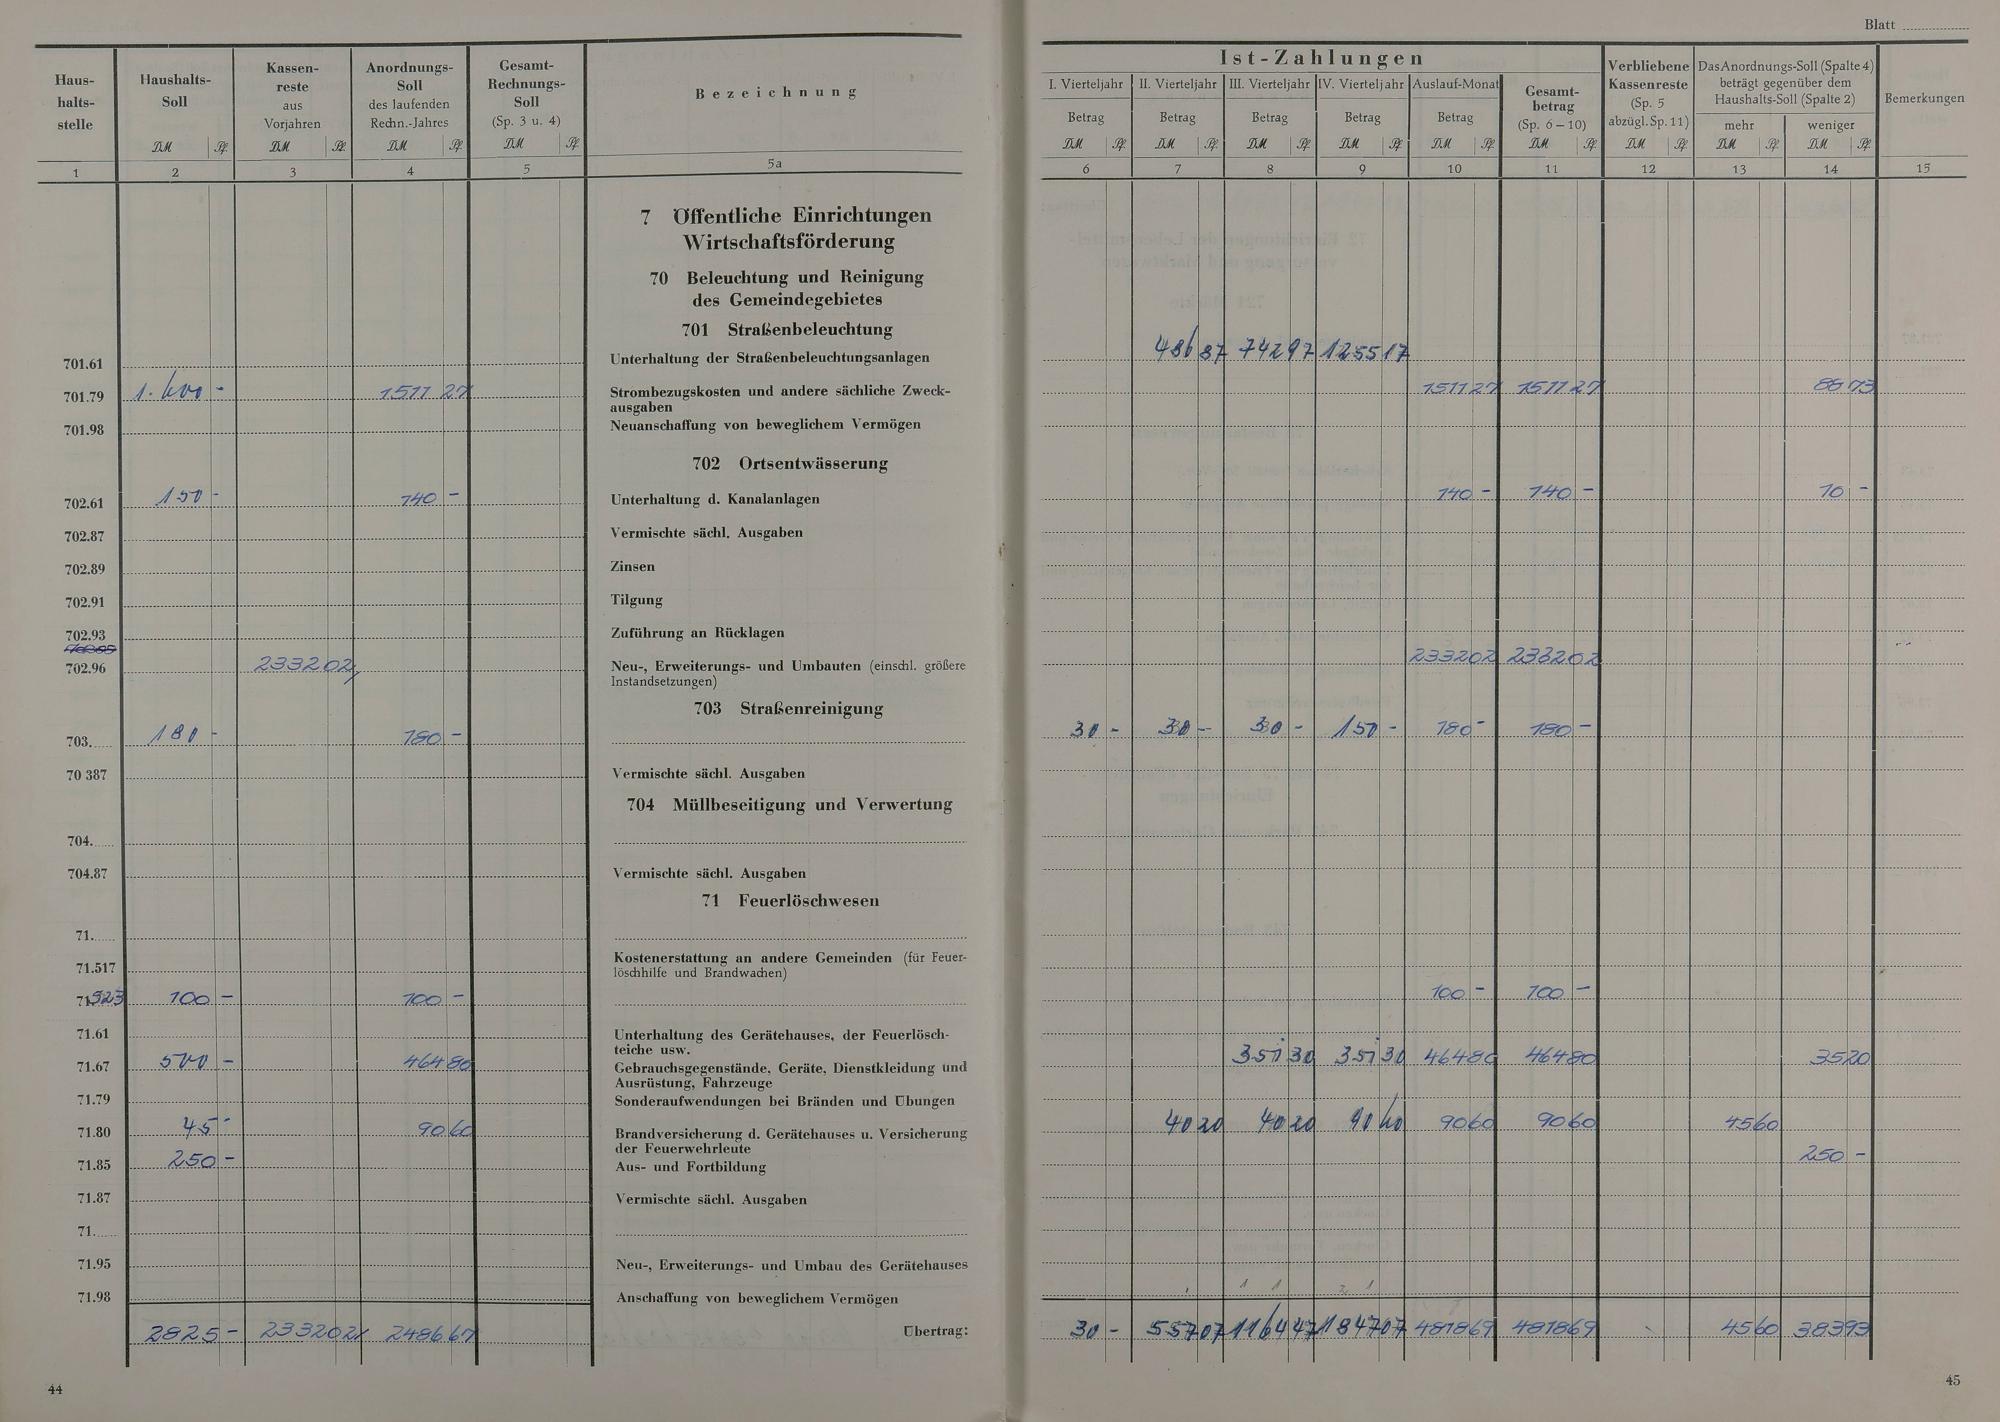 Blatt
Haus-
halts-
stelle
Haushalts-
Soll
Kassen-
reste
aus
Vorjahren
Anordnungs-
Soll
des laufenden
Rechn.-Jahres
Gesamt-
Rechnungs-
Soll
(Sp. 3 u. 4)
Bezeichnung
DM Pf. DM Pf. DM Pf. DM Pf.
1 2 3 4 5 5a
Ist-Zahlungen
I. Vierteljahr II. Vierteljahr III. Vierteljahr IV. Vierteljahr Auslauf-Monat
Betrag Betrag Betrag Betrag Betrag
Gesamt-
betrag
(Sp. 6–10)
Verbliebene
Kassenreste
(Sp. 5
abzügl. Sp. 11)
Das Anordnungs-Soll (Spalte 4)
beträgt gegenüber dem
Haushalts-Soll (Spalte 2)
mehr weniger
Bemerkungen
DM Pf. DM Pf. DM Pf. DM Pf. DM Pf. DM Pf. DM Pf. DM Pf. DM Pf.
6 7 8 9 10 11 12 13 14 15
7 Öffentliche Einrichtungen
Wirtschaftsförderung
70 Beleuchtung und Reinigung
des Gemeindegebietes
701 Straßenbeleuchtung
701.61 Unterhaltung der Straßenbeleuchtungsanlagen 486 87 742 97 1255 17
701.79 1.600 - 1511 27 Strombezugskosten und andere sächliche Zweck- 1511 27 1511 27 88 73
ausgaben
701.98 Neuanschaffung von beweglichem Vermögen
702 Ortsentwässerung
702.61 150 - 140 - Unterhaltung d. Kanalanlagen 140 - 140 - 10 -
702.87 Vermischte sächl. Ausgaben
702.89 Zinsen
702.91 Tilgung
702.93 Zuführung an Rücklagen
702.96 2332 02 Neu-, Erweiterungs- und Umbauten (einschl. größere 2332 02 2332 02
Instandsetzungen)
703 Straßenreinigung
703. 180 - 180 - 30 - 30 - 30 - 150 - 180 - 180 -
70 387 Vermischte sächl. Ausgaben
704 Müllbeseitigung und Verwertung
704.
704.87 Vermischte sächl. Ausgaben
71 Feuerlöschwesen
71.
71.517 Kostenerstattung an andere Gemeinden (für Feuer-
löschhilfe und Brandwachen)
71.523 100 - 100 - 100 - 100 -
71.61 Unterhaltung des Gerätehauses, der Feuerlösch-
teiche usw.
71.67 500 - 464 80 Gebrauchsgegenstände, Geräte, Dienstkleidung und 351 30 351 30 464 80 464 80 35 20
Ausrüstung, Fahrzeuge
71.79 Sonderaufwendungen bei Bränden und Übungen
71.80 45 - 90 60 Brandversicherung d. Gerätehauses u. Versicherung 40 20 40 20 90 60 90 60 90 60 45 60
der Feuerwehrleute
71.85 250 - Aus- und Fortbildung 250 -
71.87 Vermischte sächl. Ausgaben
71.
71.95 Neu-, Erweiterungs- und Umbau des Gerätehauses
71.98 Anschaffung von beweglichem Vermögen
2825 - 2332 02 2486 67 Übertrag: 30 - 557 07 1164 47 1847 07 4818 69 4818 69 45 60 383 93
44
45